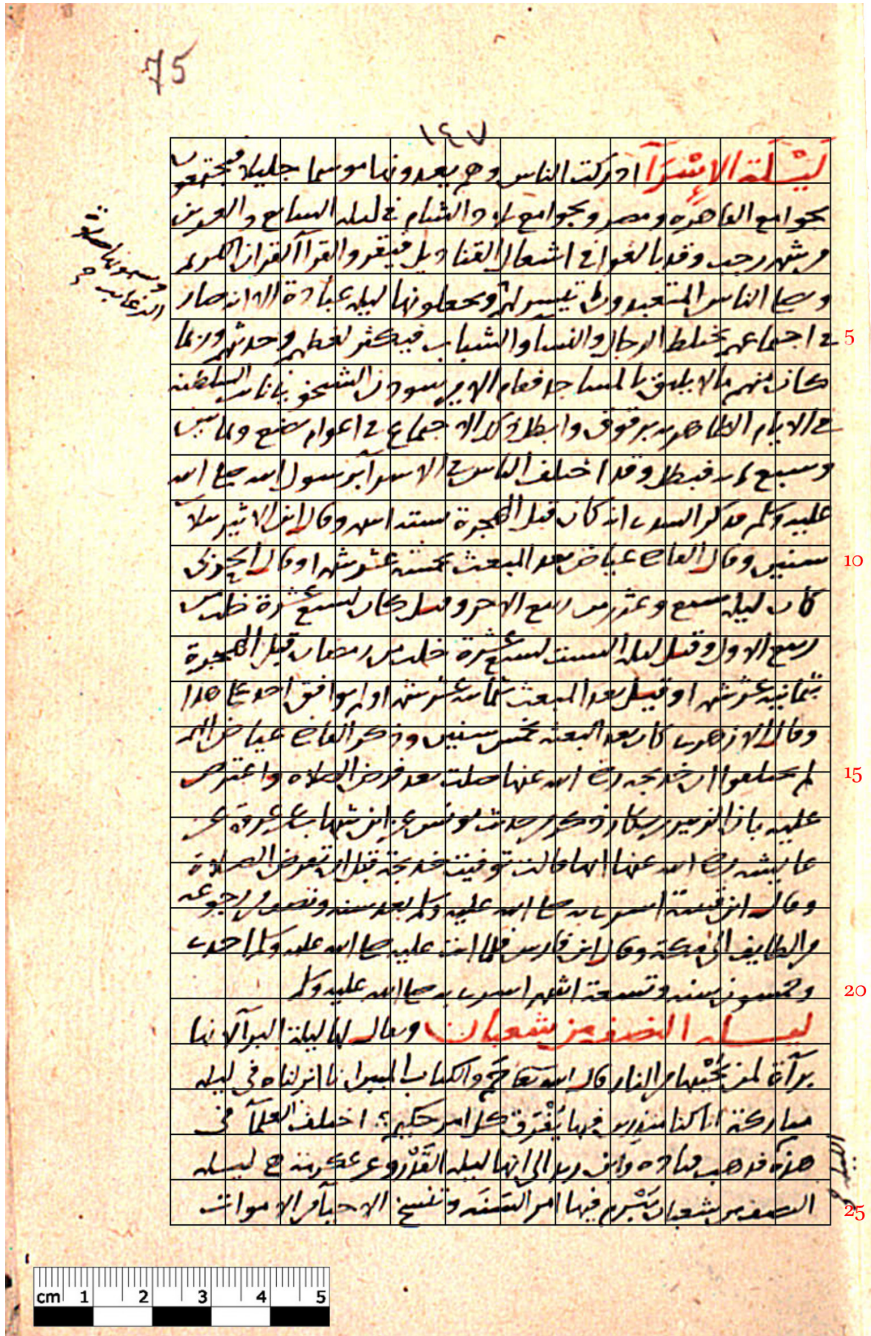 75
١٤٧
لَيْلَة الإِسْرَآ ادركت الناس وهم يعدونها موسما جليلا فيجتمعون
بجوامع القاهره ومصر وبجوامع بلاد الشام في ليله السابع والعشرين
من شهر رجب وقد بالغوا في اشعال القناديل فيقروالقرآ القران الكريم
ويصلى الناس المتعبدون ما تيسر لهم ويجعلونها ليله عبادة الا انه صار
ويسمونها صلاة
الرغايب
في اجتماعهم يختلط الرجال والنسا والشباب فيكثر لغطهم وحديثهم وربما
5
كان منهم مالا يليق بالمساجد فقام الامير سودون الشيخونى نايب السلطنه
في الايام الظاهريه برقوق وابطل ذلك الاجتماع في اعوام بضع وثمانين
وسبع ماية فبطل وقد اختلف الناس في الاسرآ برسول الله صلى الله
عليه وسلم فذكر السدى انه كان قبل الهجرة بسنه وقال ابن الاثير بثلاث
سنين وقال القاضى عياض بعد المبعث بخمسة عشر شهرا وقال الحربى
10
كان ليله سبع وعشرين من ربيع الاخر وقيل كان لسبع عشرة خلت من
ربيع الاول وقيل ليله السبت لسبع عشرة خلت من رمضان قبل الهجرة
بثمانيه عشر شهرا وقيل بعد المبعث بثمانيه عشر شهرا ولم يوافق احد على هذا
وقال الازهرى كان بعد البعثه بخمس سنين وذكر القاضى عياض انهم
لم يختلفوا ان خديجه رضى الله عنها صلت بعد فرض الصلاه واعترض
15
عليه بان الزبير بن بكار ذكر من حديث يونس عن ابن شهاب عن عروة عن
عايشه رضى الله عنها انها قالت توفيت خديجة قبل ان تفرض الصلاة
وقال ابن قتيبة اسرى به صلى الله عليه وسلم بعد سنه ونصف من رجوعه
من الطايف الى مكة وقال ابن فارس فلما اتت عليه صلى الله عليه وسلم احدى
وخمسون سنه وتسعة اشهر اسرى به صلى الله عليه وسلم
20
ليله النصف من شعبان ويقال لها ليلة البرآ لانها
برآة لمن يحييها من النار قال الله تعالى حم والكتاب المبين انا انزلناه في ليله
مباركة انا كنا منذرين فيها يُفْرَق كل امر حكيم اختلف العلمآ في
هذه فذهب قتاده وابن زيد الى انها ليله القَدْر وعن عكرمة هي ليله
النصف من شعبان يُبْرَم فيها امر السَنَه وتنسخ الاحيآ من الاموات
25
cm 1 2 3 4 5